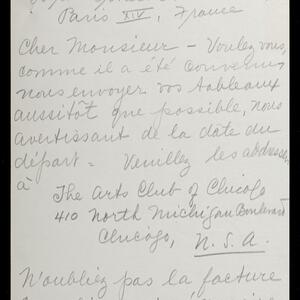 Paris XIV, France
Cher Monsieur – Voulez vous,
comme il a été convenu,
nous envoyer vos tableaux
aussitôt que possible, nous
avertissant de la date du
départ = Veuillez les addresser
à
The Arts Club of Chicago
410 North Michigan Boulevard
Chicago, U.S.A.
N'oubliez pas la facture